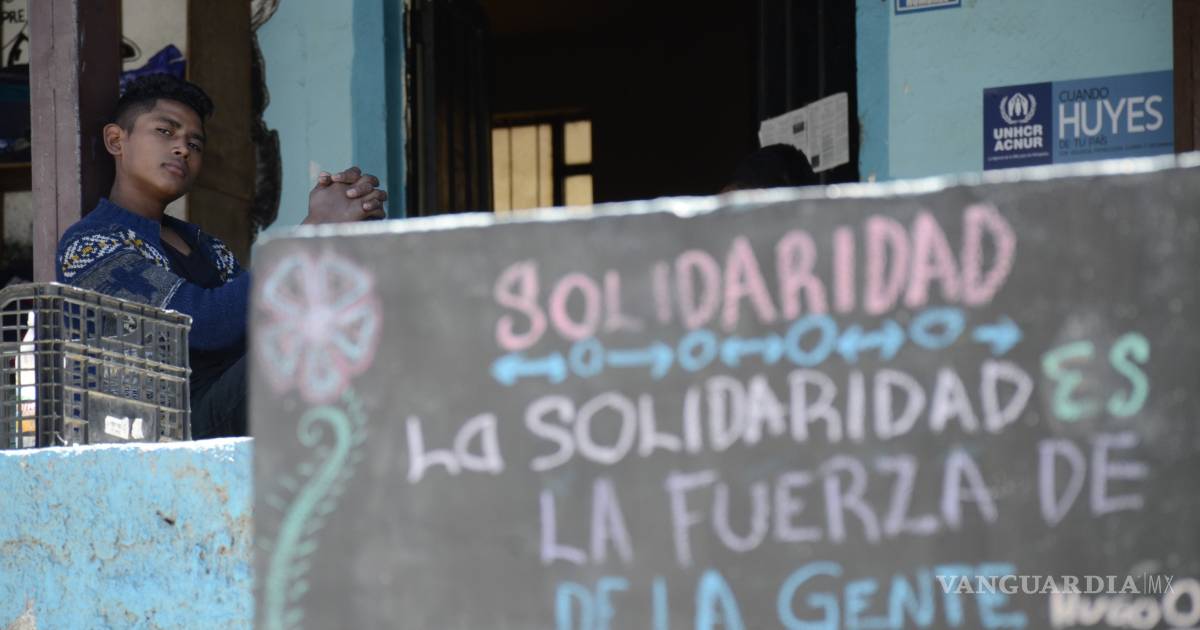 PRE,
UNHCR
ACNUR
CUANDO
HUYES
DE TU PAÍS
SOLIDARIDAD
LA SOLIDARIDAD ES
LA FUERZA DE
DE LA GENTE
HUGO
VANGUARDIA|MX